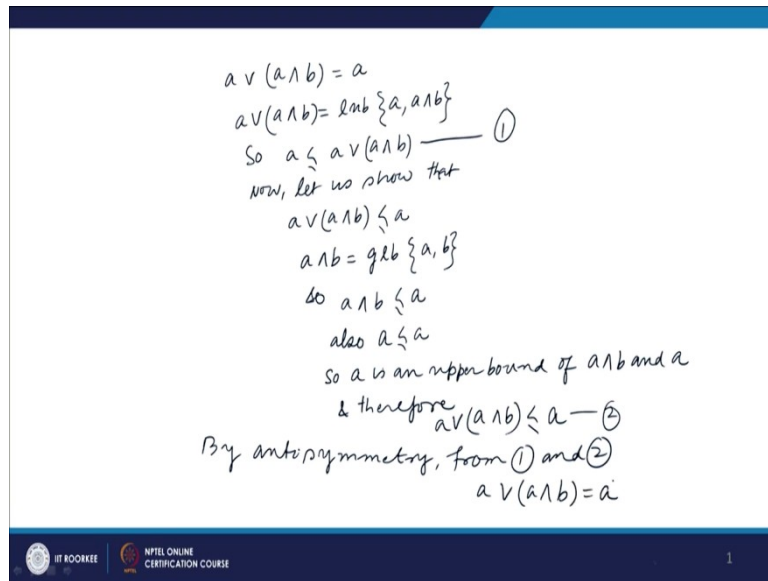 a ∨ (a ∧ b) = a
a ∨ (a ∧ b) = lub {a, a ∧ b}
So a ≤ a ∨ (a ∧ b) —— ①
Now, let us show that
a ∨ (a ∧ b) ≤ a
a ∧ b = glb {a, b}
so a ∧ b ≤ a
also a ≤ a
so a is an upper bound of a ∧ b and a
& therefore a ∨ (a ∧ b) ≤ a — ②
By antisymmetry, from ① and ②
a ∨ (a ∧ b) = a
IIT ROORKEE
NPTEL ONLINE
CERTIFICATION COURSE
1